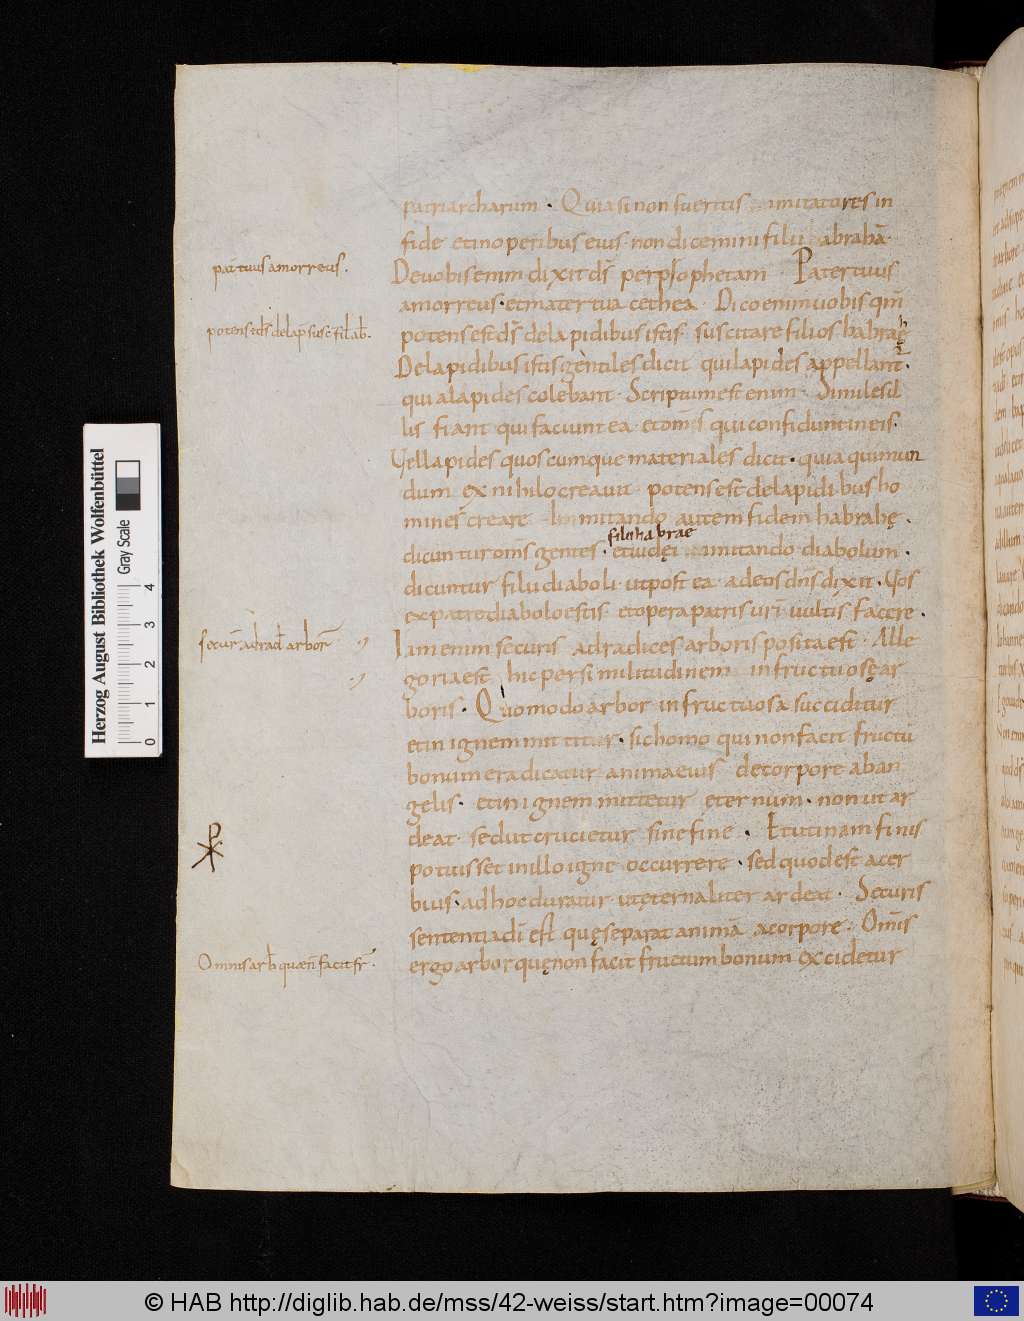 patriarcharum · Quia si non fueritis imitatores in
fide et in operibus eius · non dicemini filii abrahā ·
pat̄ tuus amorreus .
De uobis enim dixit dš per prophetam · Pater tuus
amorreus · et mater tua cethea · Dico enim uobis qm̄
potens est dš de lap susč fil ab̄ .
potens est dš de lapidibus istis · suscitare filios habrae
De lapidibus istis gentiles dicit qui lapides appellant̄ ·
qui a lapides colebant · Scriptum est enim · Similes il
lis fiant qui faciunt ea · et om̄s qui confidunt in eis ·
Vel lapides quoscumque materiales dicit · quia qui mun
dum ex nihilo creauit · potens est de lapidibus ho
mines creare imitando autem fidem habrahę ·
filii habrae
dicuntur om̄s gentes · et iudęi imitando diabolum ·
dicuntur filii diaboli · ut post ea · ad eos dn̄s dixit · Vos
ex patre diabolo estis · et opera patris ur̄i uultis facere ·
secur̄ ad rad̄ arbor̄
Iam enim securis ad radices arboris posita est · Alle
goria est hic per similitudinem infructuosę ar
boris · Quomodo arbor infructuosa succiditur
et in ignem mittitur · sic homo qui non facit fructū
bonum eradicatur anima eius de corpore ab an
gelis · et in ignem mittetur eternum · non ut ar
deat · sed ut crucietur sine fine · Et utinam finis
potuisset in illo igne occurrere · sed quod est acer
bius · ad hoc duratur ut ęternaliter ardeat · Securis
sententia dī est quę separat animā a corpore · Om̄is
Omnis arb̄ quæ n̄ facit fr̄ ·
ergo arbor quę non facit fructum bonum excidetur
Herzog August Bibliothek Wolfenbüttel
Gray Scale
0 1 2 3 4
© HAB http://diglib.hab.de/mss/42-weiss/start.htm?image=00074